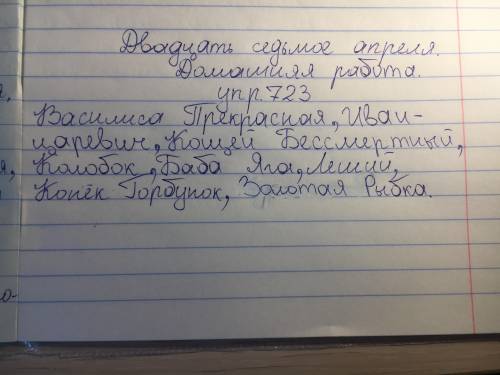 Двадцать седьмое апреля.
Домашняя работа.
упр.723
Василиса Прекрасная, Иван-
царевич, Кощей Бессмертный,
Колобок, Баба Яга, Леший,
Конёк Горбунок, Золотая Рыбка.